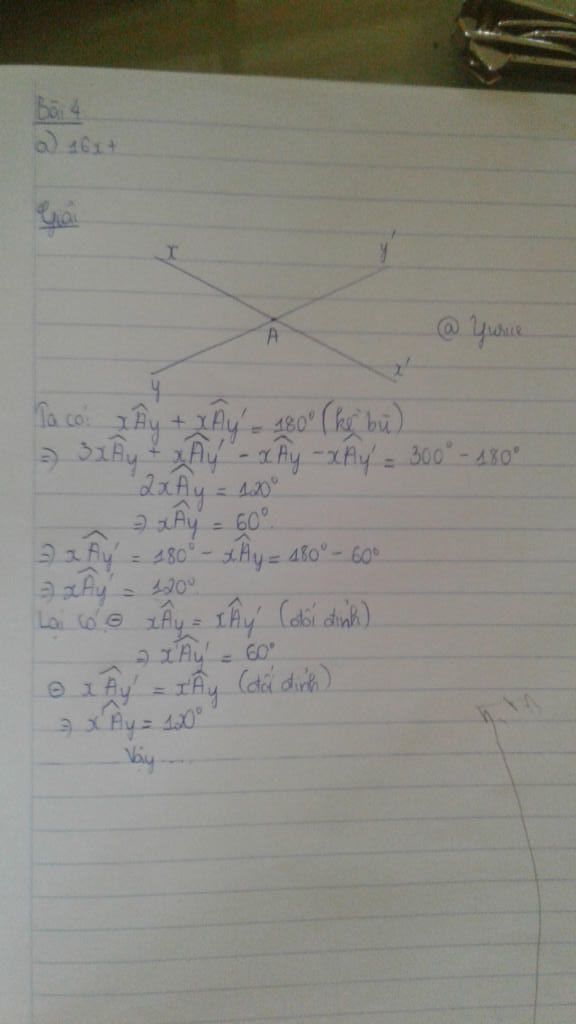 Bài 4
a) 16x+
Giải
x y'
A
@ Yurie
y x'
Ta có: xÂy + xÂy' = 180° (kề bù)
⇒ 3xÂy + xÂy' - xÂy - xÂy' = 300° - 180°
2xÂy = 120°
⇒ xÂy = 60°.
⇒ xÂy' = 180° - xÂy = 180° - 60°
⇒ xÂy' = 120°.
Lại có ⊖ xÂy = x'Ây' (đối đỉnh)
⇒ x'Ây' = 60°
⊖ xÂy' = x'Ây (đối đỉnh)
⇒ x'Ây = 120°
Vậy ....